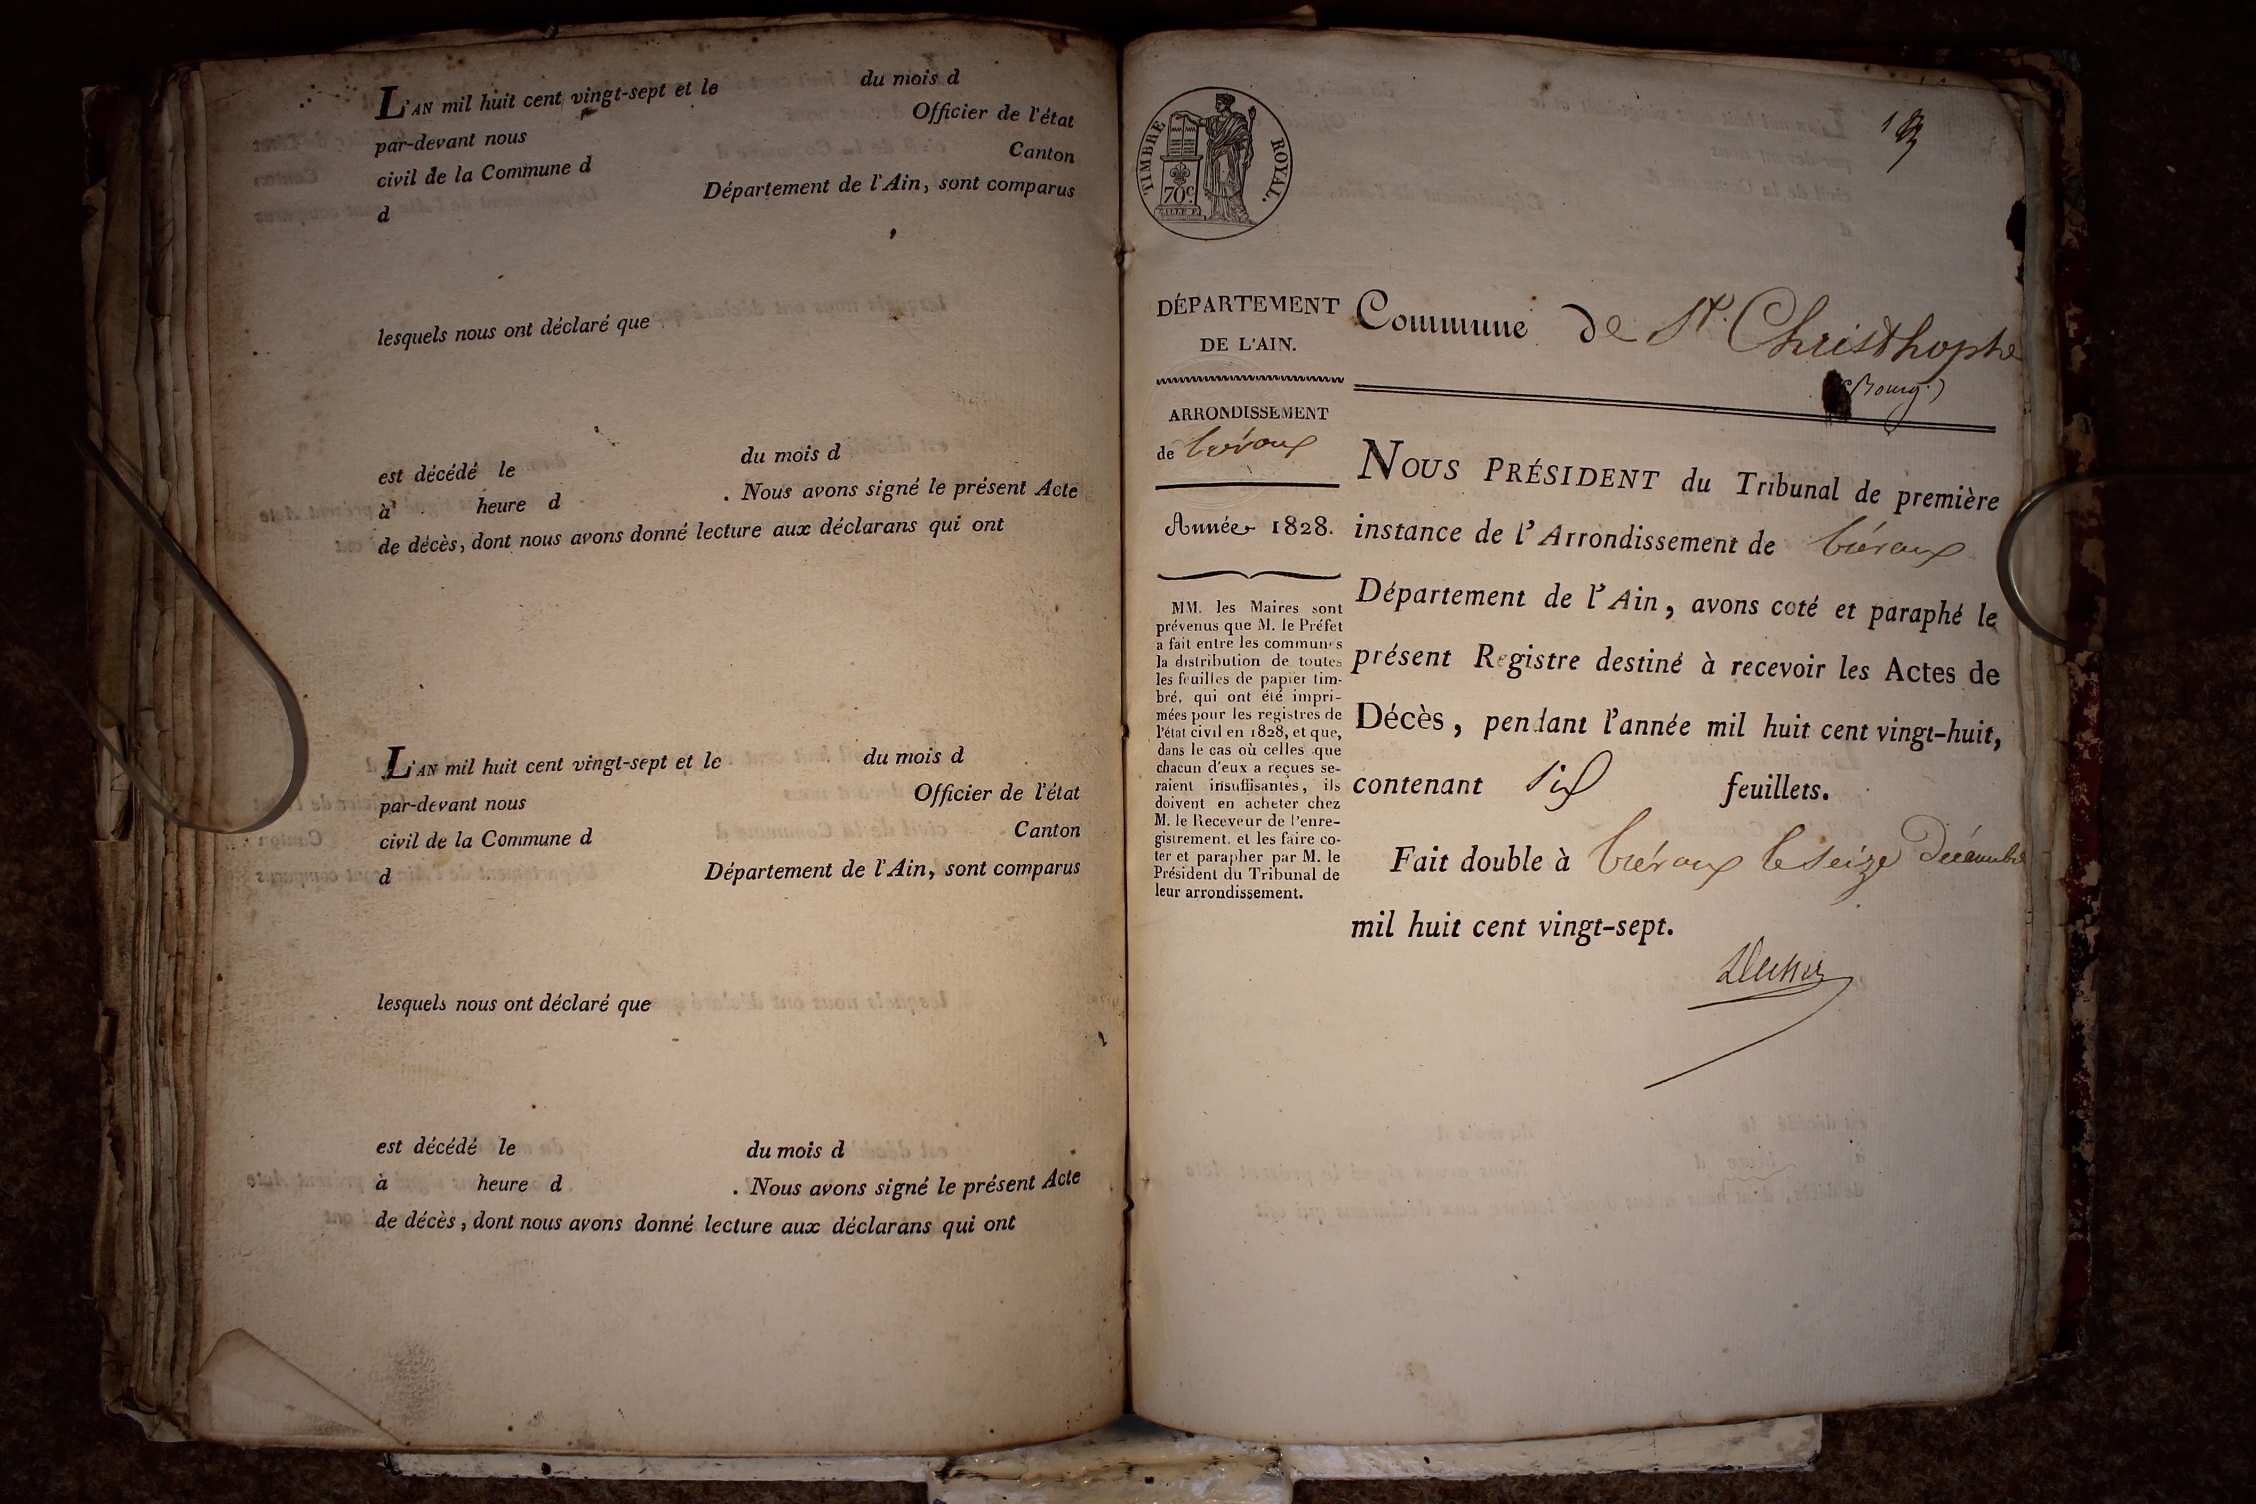 L'AN mil huit cent vingt-sept et le du mois d
par-devant nous Officier de l'état
civil de la Commune d Canton
d Département de l'Ain, sont comparus
lesquels nous ont déclaré que
est décédé le du mois d
à heure d . Nous avons signé le présent Acte
de décès, dont nous avons donné lecture aux déclarans qui ont
L'AN mil huit cent vingt-sept et le du mois d
par-devant nous Officier de l'état
civil de la Commune d Canton
d Département de l'Ain, sont comparus
lesquels nous ont déclaré que
est décédé le du mois d
à heure d . Nous avons signé le présent Acte
de décès, dont nous avons donné lecture aux déclarans qui ont
TIMBRE ROYAL.
70c
DÉPARTEMENT
DE L'AIN.
ARRONDISSEMENT
de Trévoux
Année 1828.
MM. les Maires sont
prévenus que M. le Préfet
a fait entre les communes
la distribution de toutes
les feuilles de papier tim-
bré, qui ont été impri-
mées pour les registres de
l'état civil en 1828, et que,
dans le cas où celles que
chacun d'eux a reçues se-
raient insuffisantes, ils
doivent en acheter chez
M. le Receveur de l'enre-
gistrement, et les faire co-
ter et parapher par M. le
Président du Tribunal de
leur arrondissement.
Commune de St. Christhophe
(Bourg.)
NOUS PRÉSIDENT du Tribunal de première
instance de l'Arrondissement de Trévoux
Département de l'Ain, avons coté et paraphé le
présent Registre destiné à recevoir les Actes de
Décès, pendant l'année mil huit cent vingt-huit,
contenant Six feuillets.
Fait double à Trévoux le seize Décembre
mil huit cent vingt-sept.